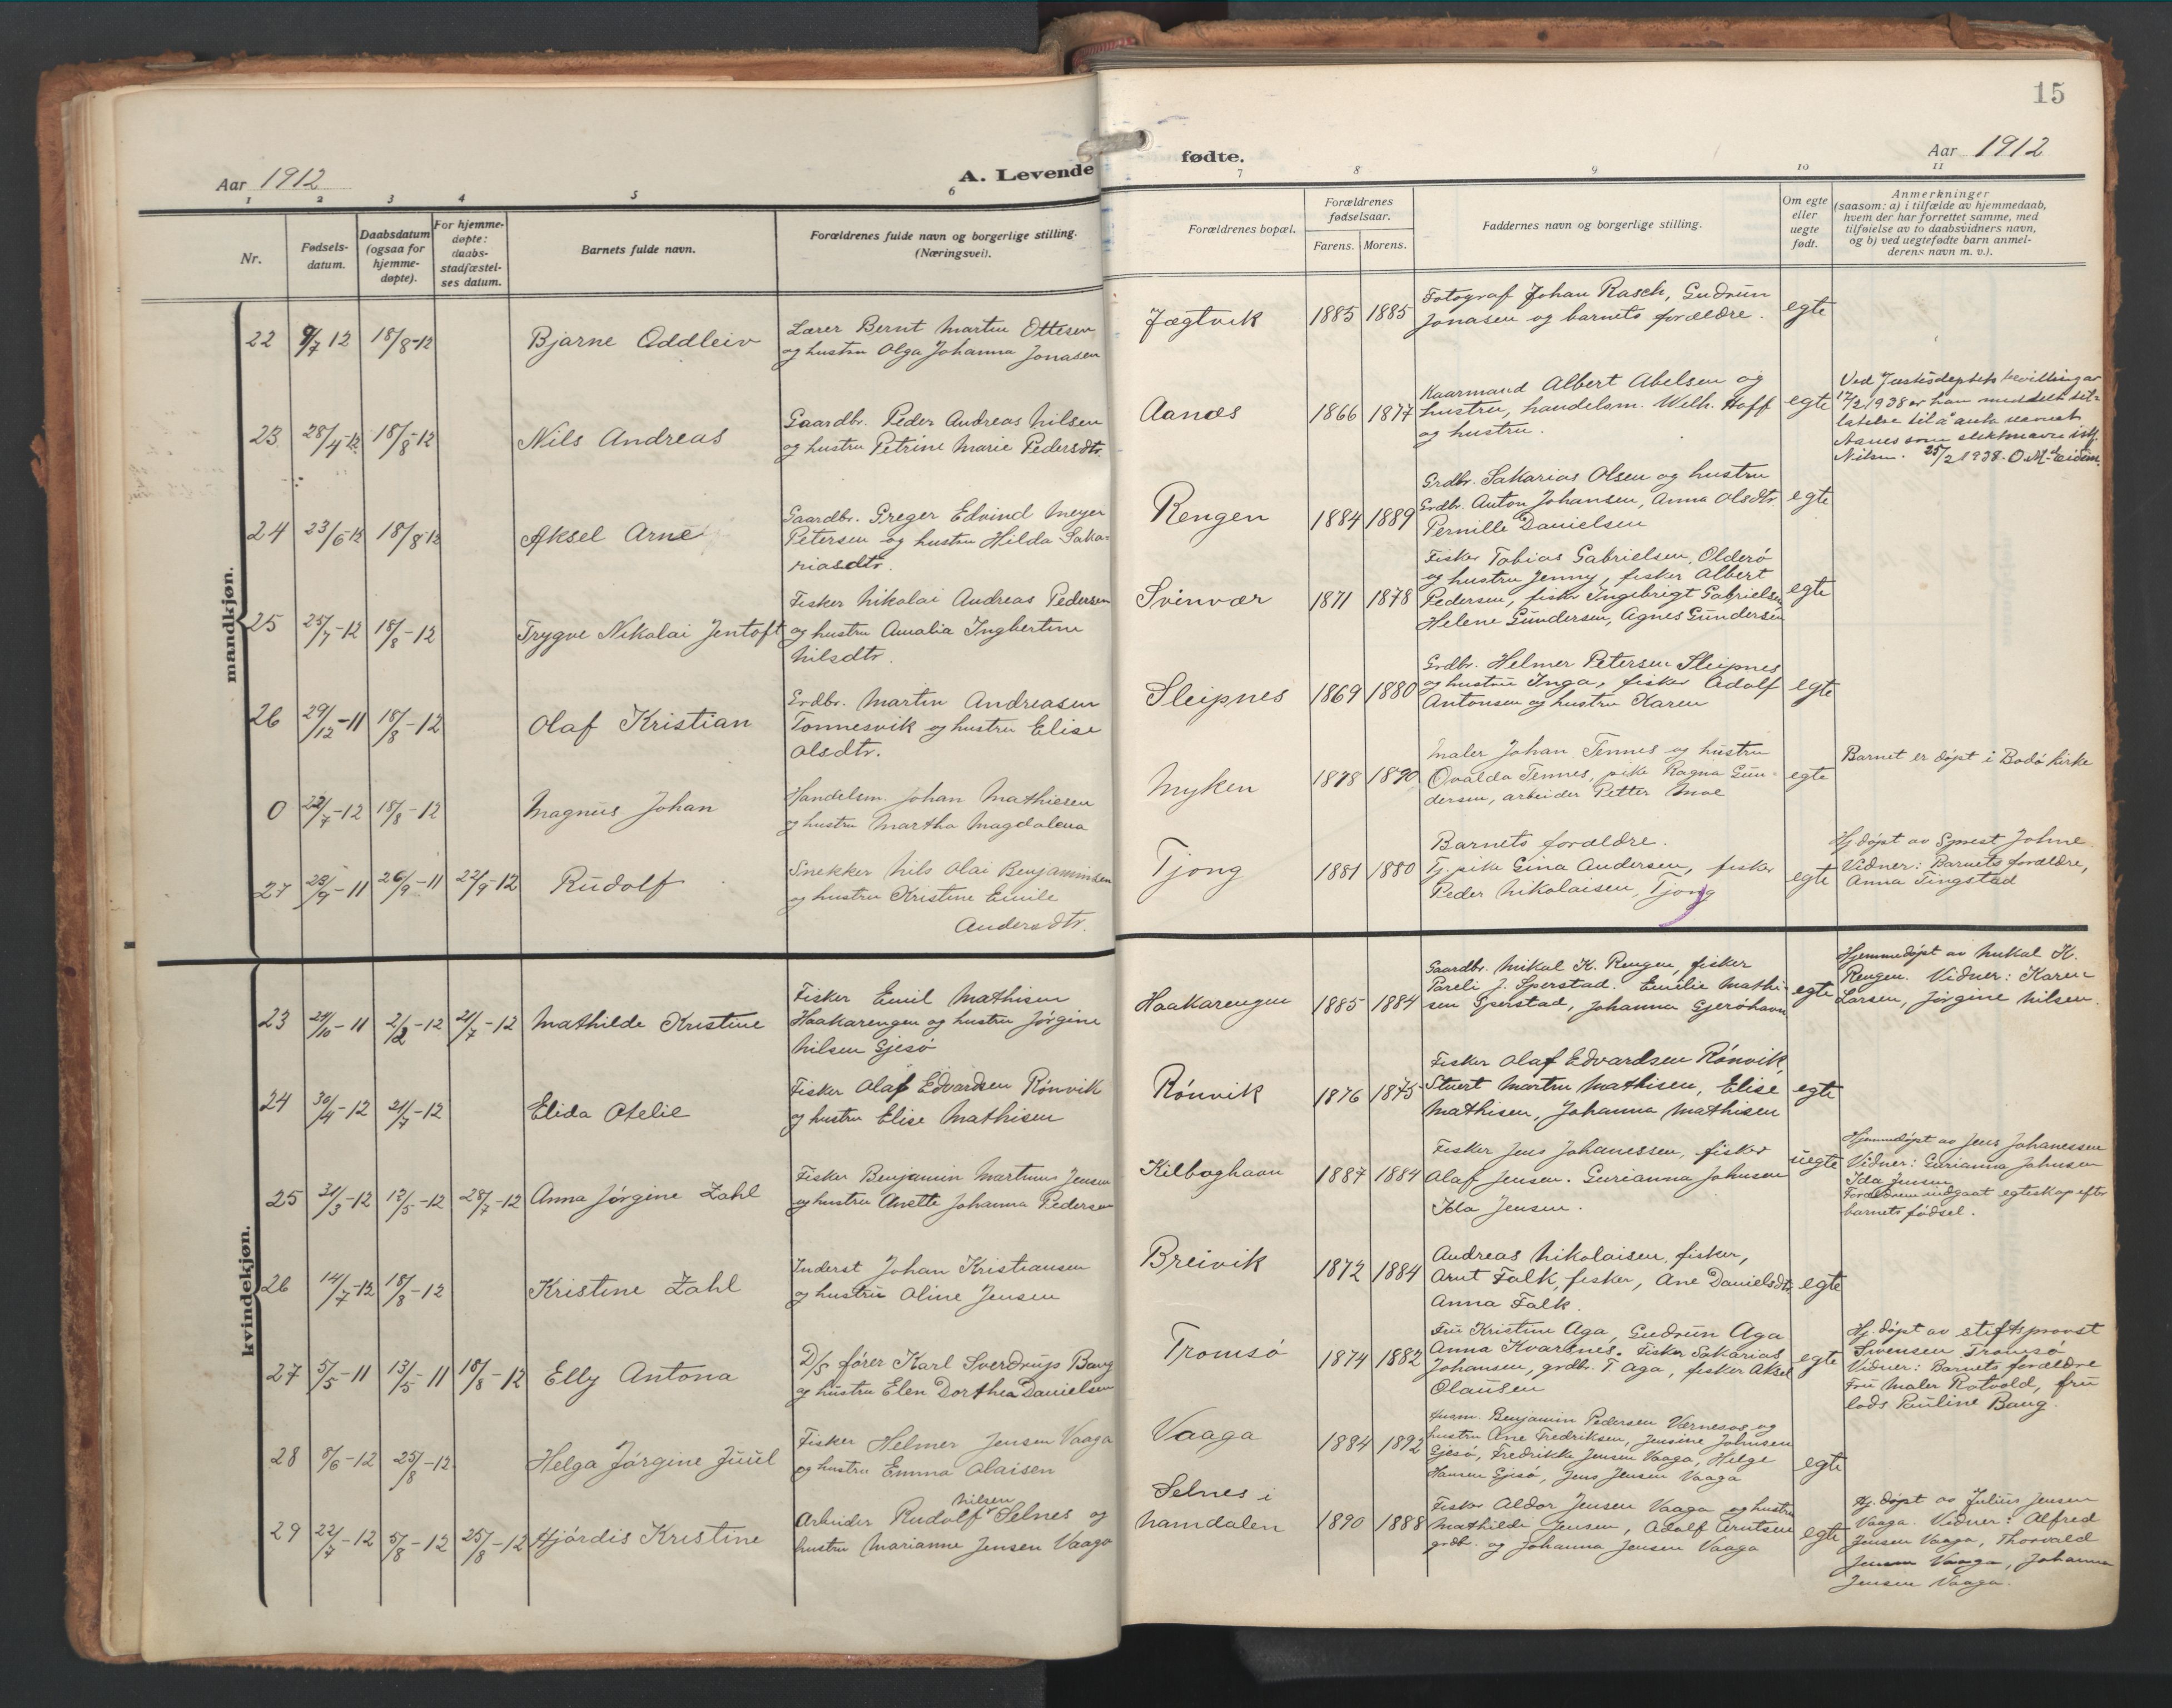 15
Aar 1912
A. Levende
fødte.
Aar 1912
1 2 3 4 5 6 7 8 9 10 11
Nr.
Fødsels-
datum.
Daabsdatum
(ogsaa for
hjemme-
døpte).
For hjemme-
døpte:
daabs-
stadfæstel-
ses datum.
Barnets fulde navn.
Forældrenes fulde navn og borgerlige stilling.
(Næringsvei).
Forældrenes bopæl.
Forældrenes
fødselsaar.
Farens. Morens.
Faddernes navn og borgerlige stilling.
Om egte
eller
uegte
født.
Anmerkninger
(saasom: a) i tilfælde av hjemmedaab,
hvem der har forrettet samme, med
tilføielse av to daabsvidners navn,
og b) ved uegtefødte barn anmel-
derens navn m. v.).
mandkjøn.
22 9/7 12 18/8-12 Bjarne Oddleiv
Lærer Bernt Martin Ottesen
og hustru Olga Johanna Jonasen
Jægtvik 1885 1885
Fotograf Johan Rasch, Gudrun
Jonasen og barnets forældre.
egte
23 28/4-12 18/8-12 Nils Andreas
Gaardbr. Peder Andreas Nilsen
og hustru Petrine Marie Pedersdtr.
Aanæs 1866 1877
Kaarmand Albert Abelsen og
hustru, handelsm. Wilh. Hoff
og hustru.
egte
Ved Justisdeptets bevilling av
17/2 1938 er han meddelt til-
latelse til å anta navnet
Aanes som slektsnavn istf.
Nilsen. 25/2 1938. O.M. Eidem.
24 23/6-12 18/8-12 Aksel Arne
Gaardbr. Greger Edvind Meyer
Petersen og hustru Hilda Saka-
riasdtr.
Rengen 1884 1889
Grdbr. Sakarias Olsen og hustru
Grdbr. Anton Johansen, Anna Olsdtr.
Pernille Danielsen
egte
25 25/7-12 18/8-12 Trygve Nikolai Jentoft
Fisker Nikolai Andreas Pedersen
og hustru Amalia Ingbertine
Nilsdtr.
Svinvær 1871 1878
Fisker Tobias Gabrielsen, Olderø
og hustru Jenny, fisker Albert
Pedersen, fisker Ingebrigt Gabrielsen
Helene Gundersen, Agnes Gundersen
egte
26 29/12-11 18/8-12 Olaf Kristian
Grdbr. Martin Andreasen
Tonnesvik og hustru Elise
Olsdtr.
Sleipnes 1869 1880
Grdbr. Helmer Petersen Sleipnes
og hustru Inga, fisker Adolf
Antonsen og hustru Karen
egte
0 22/7-12 18/8-12 Magnus Johan
Handelsm. Johan Mathiesen
og hustru Martha Magdalena
Myken 1878 1890
Maler Johan Tennes og hustru
Ovalda Tennes, pike Ragna Gun-
dersen, arbeider Petter Moe
egte
Barnet er døpt i Bodø kirke
27 23/9-11 26/9-11 22/9-12 Rudolf
Snekker Nils Olai Benjaminsen
og hustru Kristine Emile
Andersdtr.
Tjong 1881 1880
Barnets forældre.
Tj. pike Gina Andersen, fisker
Peder Nikolaisen, Tjong
egte
Hj. døpt av Sprest Johne
Vidner: Barnets forældre,
Anna Tingstad
kvindekjøn.
23 24/10-11 2/2-12 21/7-12 Mathilde Kristine
Fisker Emil Mathisen
Haakarengen og hustru Jørgine
Nilsen Gjesø
Haakarengen 1885 1884
Gaardbr. Mikal K. Rengen, fisker
Pareli J. Sperstad. Emelie Mathi-
sen Sperstad, Johanna Gjerøhavn
egte
Hjemmedøpt av Mikal K.
Rengen. Vidner: Karen
Larsen, Jørgine Nilsen.
24 30/4-12 21/7-12 Elida Otelie
Fisker Olaf Edvardsen Rønvik
og hustru Elise Mathisen
Rønvik 1876 1875
Fisker Olaf Edvardsen Rønvik,
Stuert Martin Mathisen, Elise
Mathisen, Johanna Mathisen
egte
25 31/3-12 12/5-12 28/7-12 Anna Jørgine Zahl
Fisker Benjamin Martinus Jensen
og hustru Anette Johanna Pedersen
Kilboghavn 1887 1884
Fisker Jens Johanessen, fisker
Olaf Jensen. Gurianna Johnsen
Ida Jensen.
uegte
Hjemmedøpt av Jens Johanessen
Vidner: Gurianna Johnsen
Ida Jensen
Forældrene indgaat egteskap efter
barnets fødsel.
26 14/7-12 18/8-12 Kristine Zahl
Inderst Johan Kristiansen
og hustru Oline Jensen
Breivik 1872 1884
Andreas Nikolaisen, fisker,
Arnt Falk, fisker, Ane Danielsdtr.
Anna Falk.
egte
27 5/5-11 13/5-11 18/8-12 Elly Antona
D/S fører Karl Sverdrup Baug
og hustru Elen Dorthea Danielsen
Tromsø 1874 1882
Fru Kristine Aga, Gudrun Aga
Anna Kvarsnes. Fisker Sakarias
Johansen, grdbr. T Aga, fisker Aksel
Olausen
egte
Hj. døpt av stiftsprovst
Svensen Tromsø
Vidner: Barnets forældre
Fru Maler Rotvold, fru
lods Pauline Baug.
28 8/6-12 25/8-12 Helga Jørgine Juul
Fisker Helmer Jensen Vaaga
og hustru Emma Olaisen
Vaaga 1884 1892
Husm. Benjamin Pedersen Værnesos og
hustru Ane Fredriksen, Jensine Johnsen
Gjesø, Fredrikke Jensen Vaaga, Helge
Hansen Gjesø, Jens Jensen Vaaga
egte
29 22/7-12 5/8-12 25/8-12 Hjørdis Kristine
Arbeider Rudolf Nilsen Selnes og
hustru Marianne Jensen Vaaga
Selnes i
Namdalen 1890 1888
Fisker Aldor Jensen Vaaga og hustru
Mathilde Jensen, Adolf Arntsen
grdbr. og Johanna Jensen Vaaga
egte
Hj. døpt av Julius Jensen
Vaaga. Vidner: Alfred
Jensen Vaaga, Thorvald
Jensen Vaaga, Johanna
Jensen Vaaga.